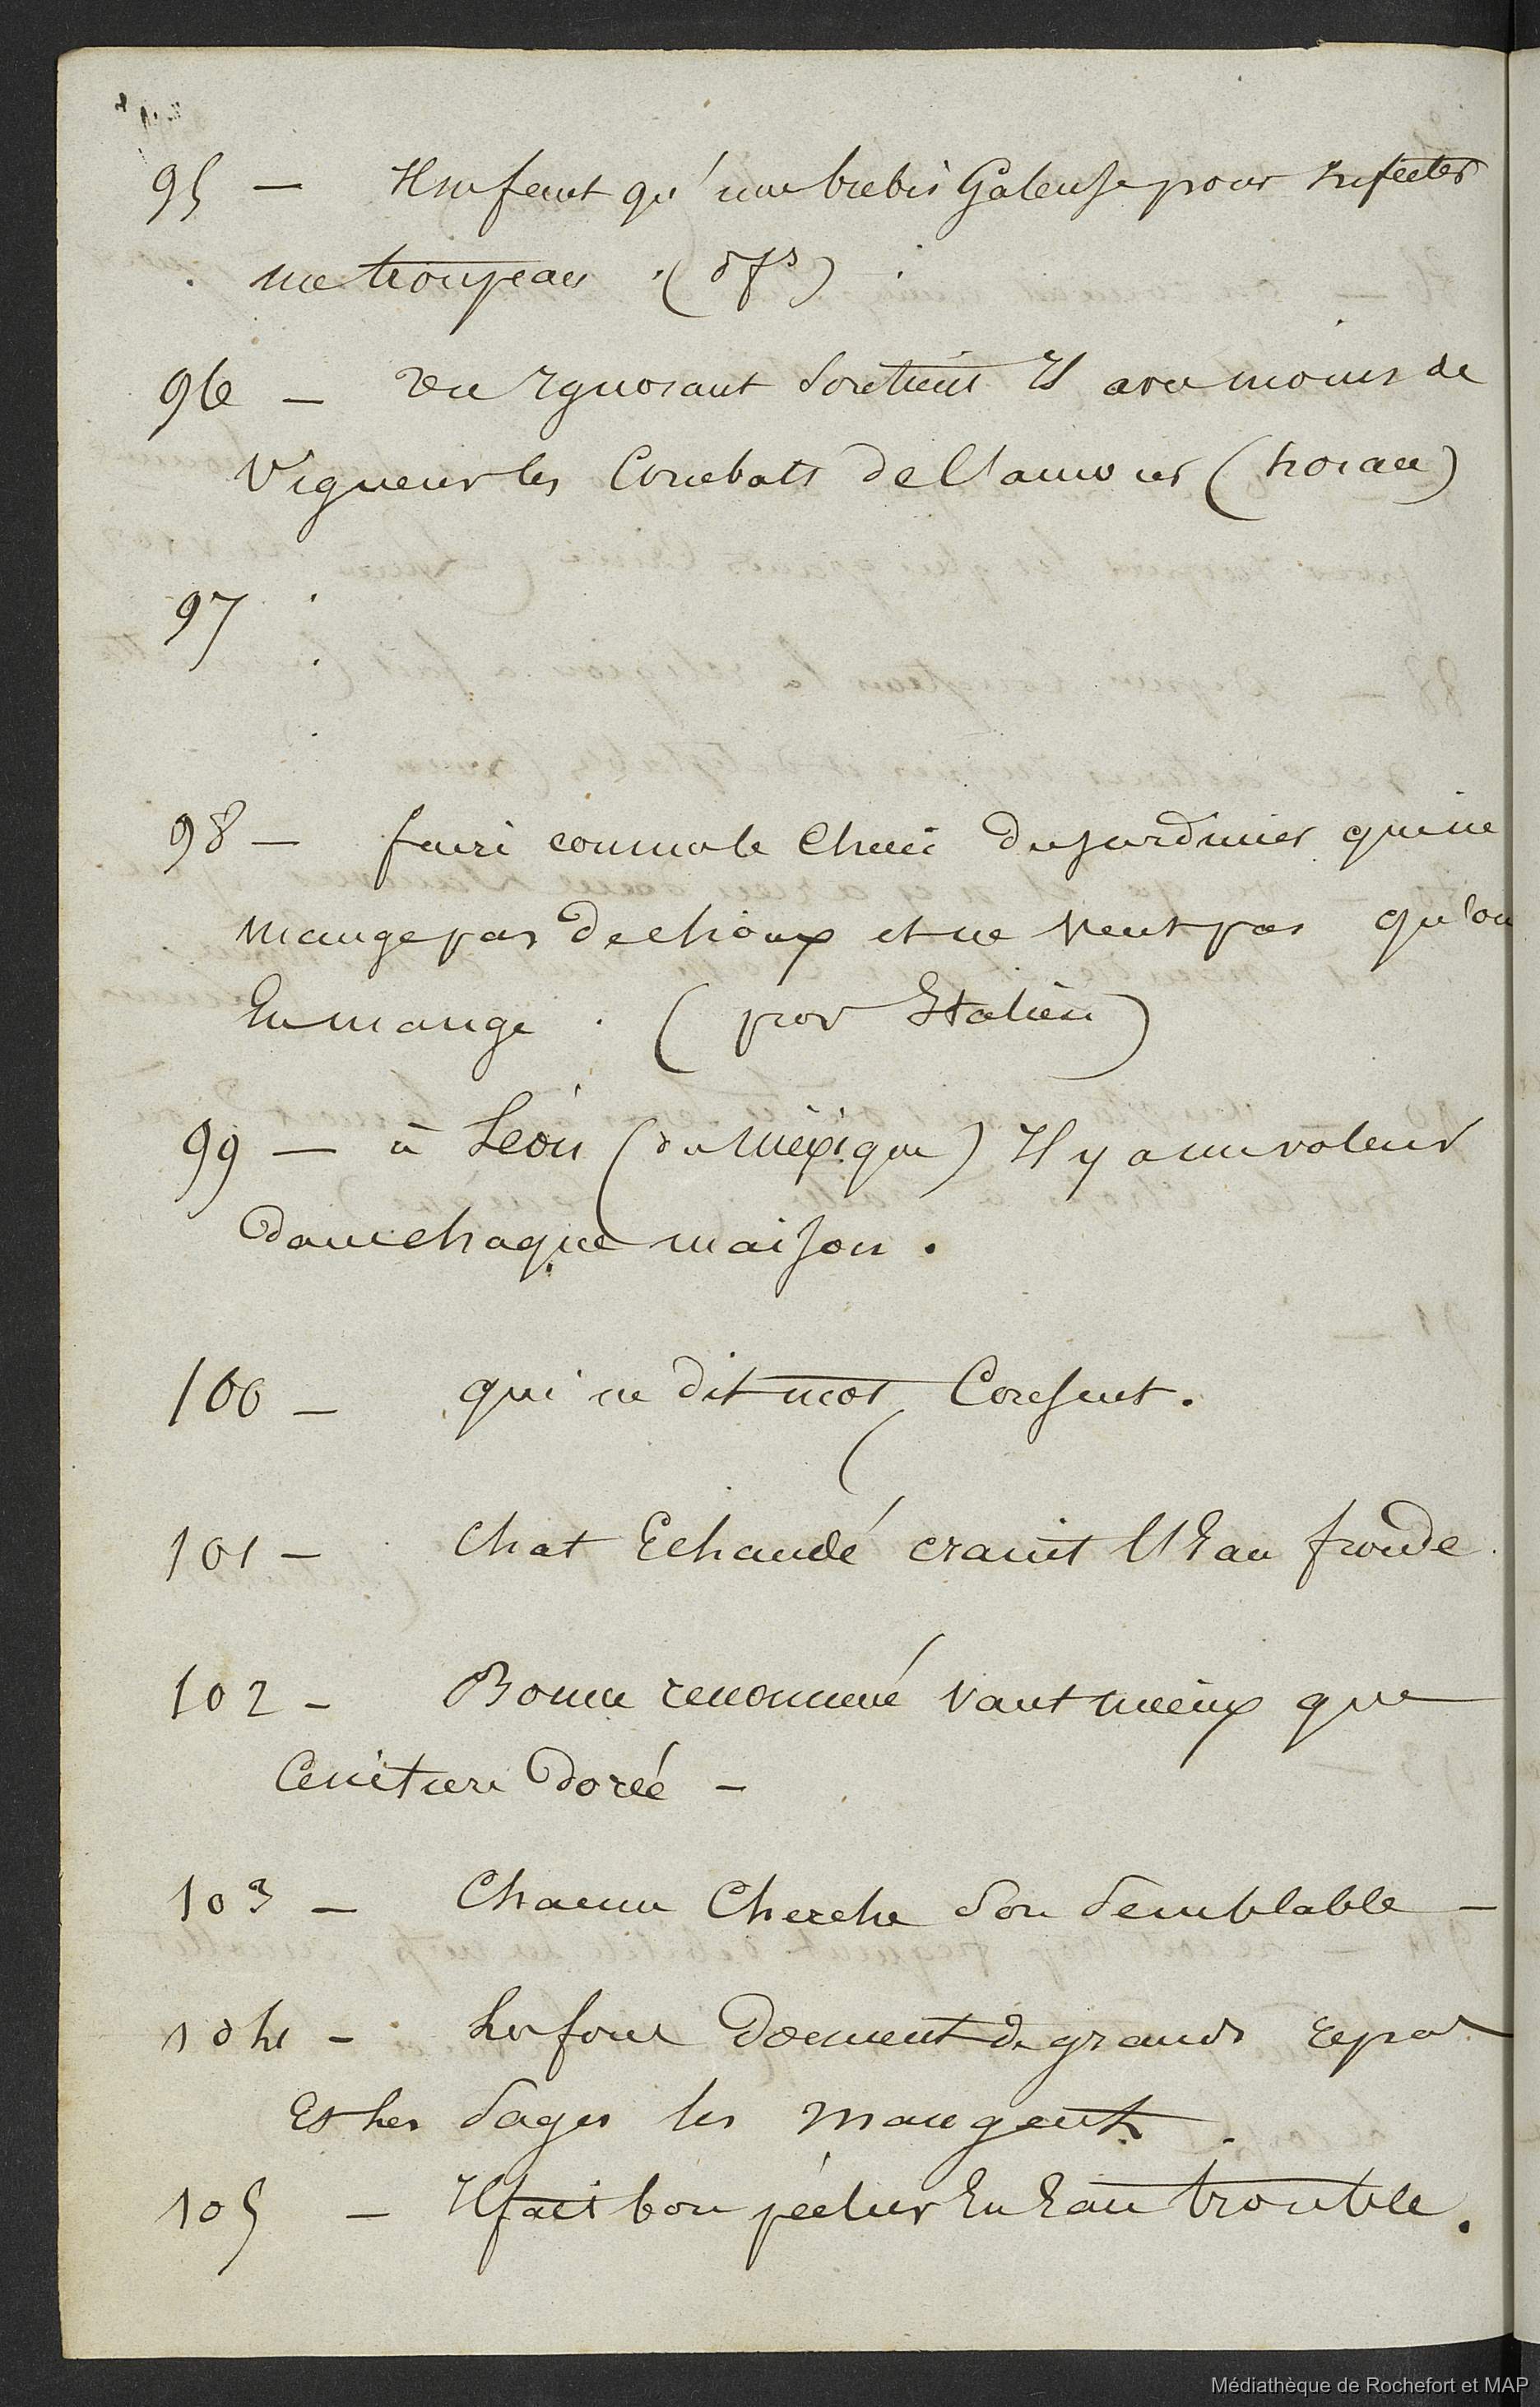 95 — Il ne faut qu'une brebis Galeuse pour Infecter
un troupeau . (dts)
96 — un Ignorant soutient Il avec moins de
Vigueur les Combats de l'amour (horace)
97
98 — faire comme le Chien du jardinier qui ne
mange pas de choux et ne veut pas qu'on
En mange . (prov Italien)
99 — à Léon (du Méxique) Il y a un voleur
dans chaque maison .
100 — qui ne dit mot Consent .
101 — Chat Echaudé craint l'Eau froide .
102 — Bonne renommé vaut mieux que
Ceinture dorée —
103 — Chacun Cherche son semblable —
104 — Les fous donnent de grands repas
Et les sages les mangent .
105 — Il fait bon pécher En Eau trouble .
Médiathèque de Rochefort et MAP